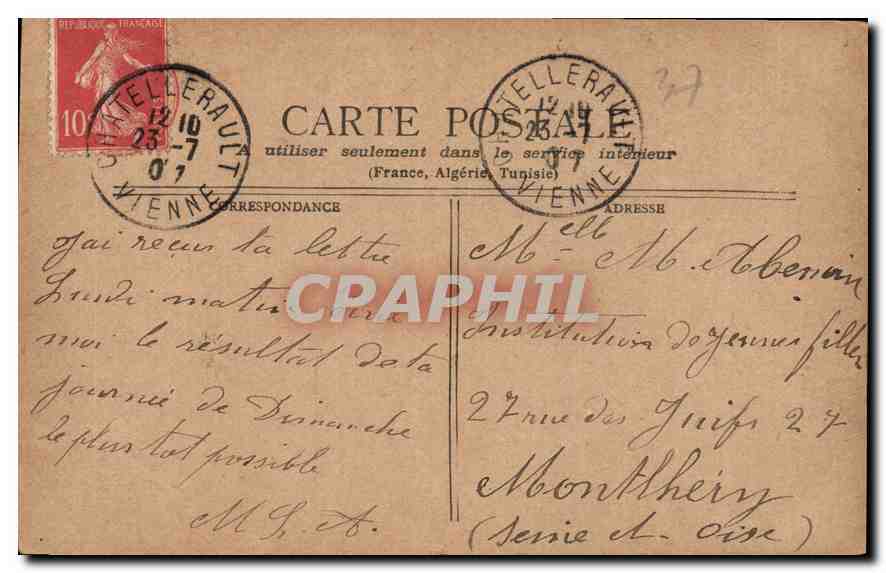 REPUBLIQUE FRANÇAISE
10
CHATELLERAULT
12 10
23 -7
07
VIENNE
CHATELLERAULT
12 10
23 -7
07
VIENNE
37
CARTE POSTALE
A utiliser seulement dans le service intérieur
(France, Algérie, Tunisie)
CORRESPONDANCE
J'ai reçus ta lettre
Lundi matin
moi le résultat de ta
journée de Dimanche
le plus tot possible
M. L. A.
ADRESSE
Melle M.
Institution de Jeunes filles
27 rue des Juifs 27
Montlhéry
(Seine et Oise)
CPAPHIL